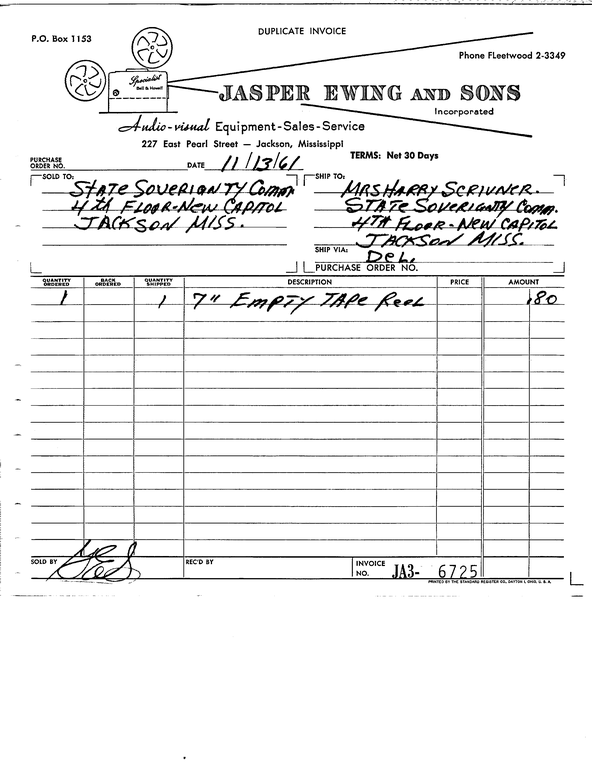 DUPLICATE INVOICE
P.O. Box 1153
Phone Fleetwood 2-3349
Specialist
Bell & Howell
JASPER EWING AND SONS
Incorporated
Audio-visual Equipment-Sales-Service
227 East Pearl Street — Jackson, Mississippi
TERMS: Net 30 Days
PURCHASE ORDER NO.
DATE 11/13/61
SOLD TO:
STATE SOVERIGNTY COMM.
4TH FLOOR-NEW CAPITOL
JACKSON MISS.
SHIP TO:
MRS HARRY SCRIVNER.
STATE SOVERIGNTY COMM.
4TH FLOOR-NEW CAPITOL
JACKSON MISS.
SHIP VIA: DEL.
PURCHASE ORDER NO.
QUANTITY ORDERED BACK ORDERED QUANTITY SHIPPED DESCRIPTION PRICE AMOUNT
1 1 7" EMPTY TAPE REEL .80
SOLD BY REC'D BY INVOICE NO. JA3- 6725
PRINTED BY THE STANDARD REGISTER CO., DAYTON 1, OHIO, U. S. A.